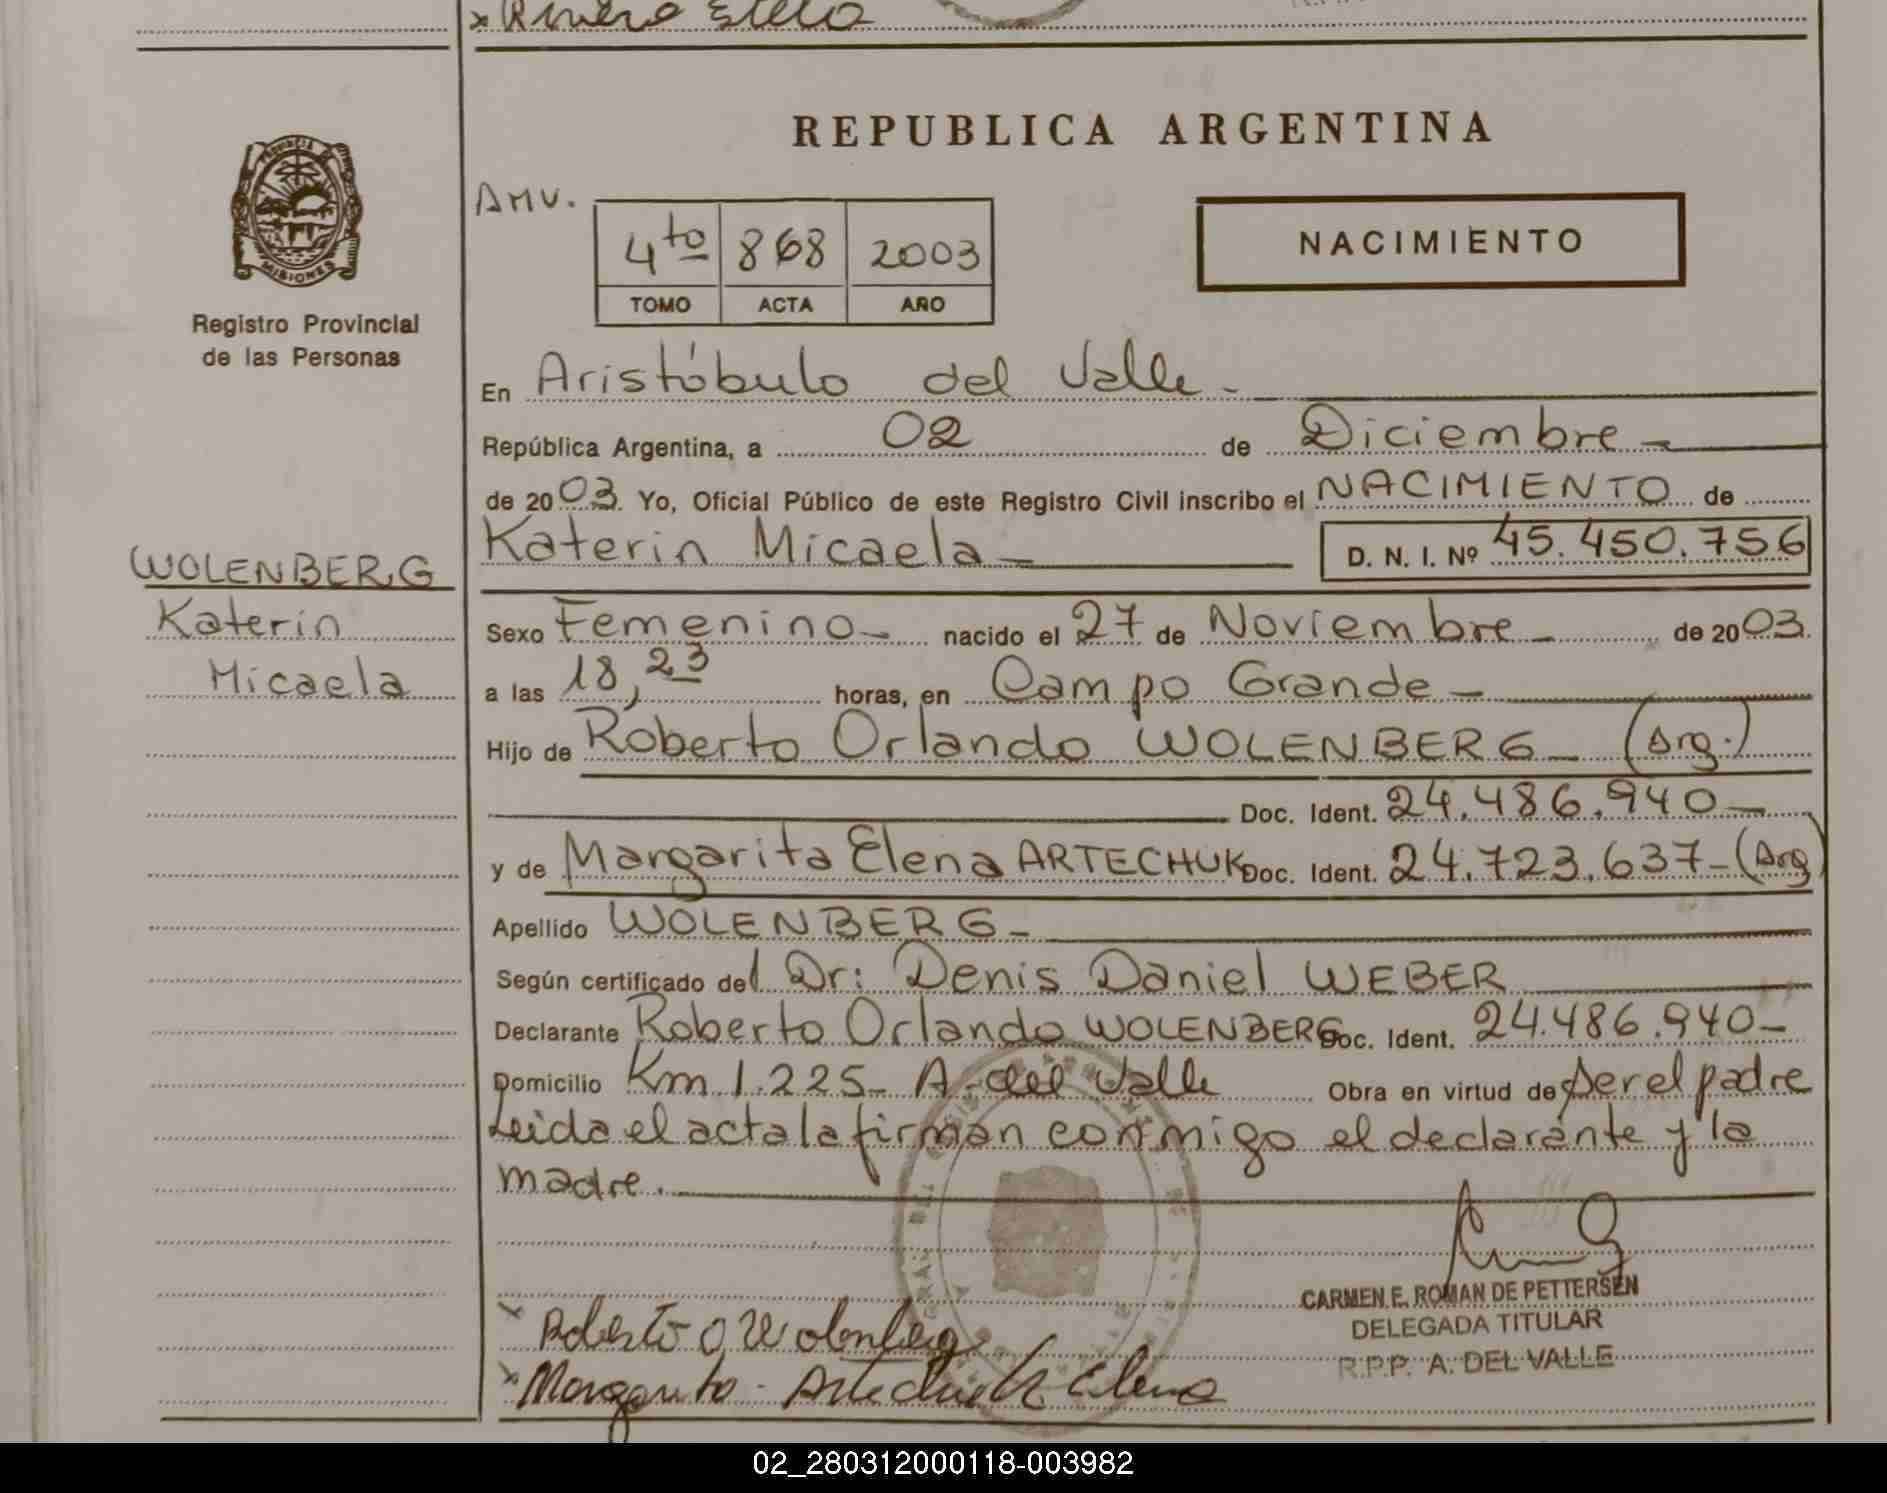 x Rivero Stella
REPUBLICA ARGENTINA
PROVINCIA DE
MISIONES
Registro Provincial
de las Personas
AMV.
4to 868 2003
TOMO ACTA AÑO
NACIMIENTO
En Aristóbulo del Valle -
República Argentina, a 02 de Diciembre -
de 2003. Yo, Oficial Público de este Registro Civil inscribo el NACIMIENTO de
Katerin Micaela - D. N. I. Nº 45.450.756
WOLENBERG
Katerin
Micaela
Sexo Femenino - nacido el 27 de Noviembre - de 2003.
a las 18,23 horas, en Campo Grande -
Hijo de Roberto Orlando WOLENBERG - (Arg.)
Doc. Ident. 24.486.940 -
y de Margarita Elena ARTECHUK Doc. Ident. 24.723.637 - (Arg)
Apellido WOLENBERG -
Según certificado del Dr: Denis Daniel WEBER
Declarante Roberto Orlando WOLENBERG Doc. Ident. 24.486.940 -
Domicilio Km 1.225 - A. del Valle Obra en virtud de ser el padre
Leida el acta la firman conmigo el declarante y la
madre.
CARMEN E. ROMAN DE PETTERSEN
DELEGADA TITULAR
R.P.P. A. DEL VALLE
x Roberto O Wolenberg
x Margarita - Artechuk Elena
02_280312000118-003982